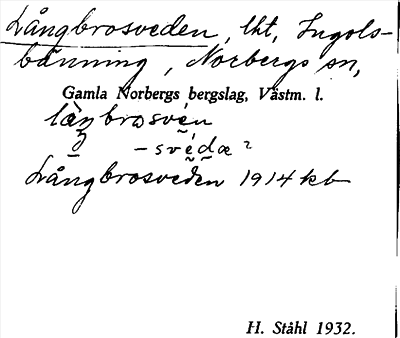 Långbrosveden, lht, Ingols-
bänning, Norbergs sn,
Gamla Norbergs bergslag, Västm. l.
-svédæ
Långbrosveden 1914 kb
H. Ståhl 1932.